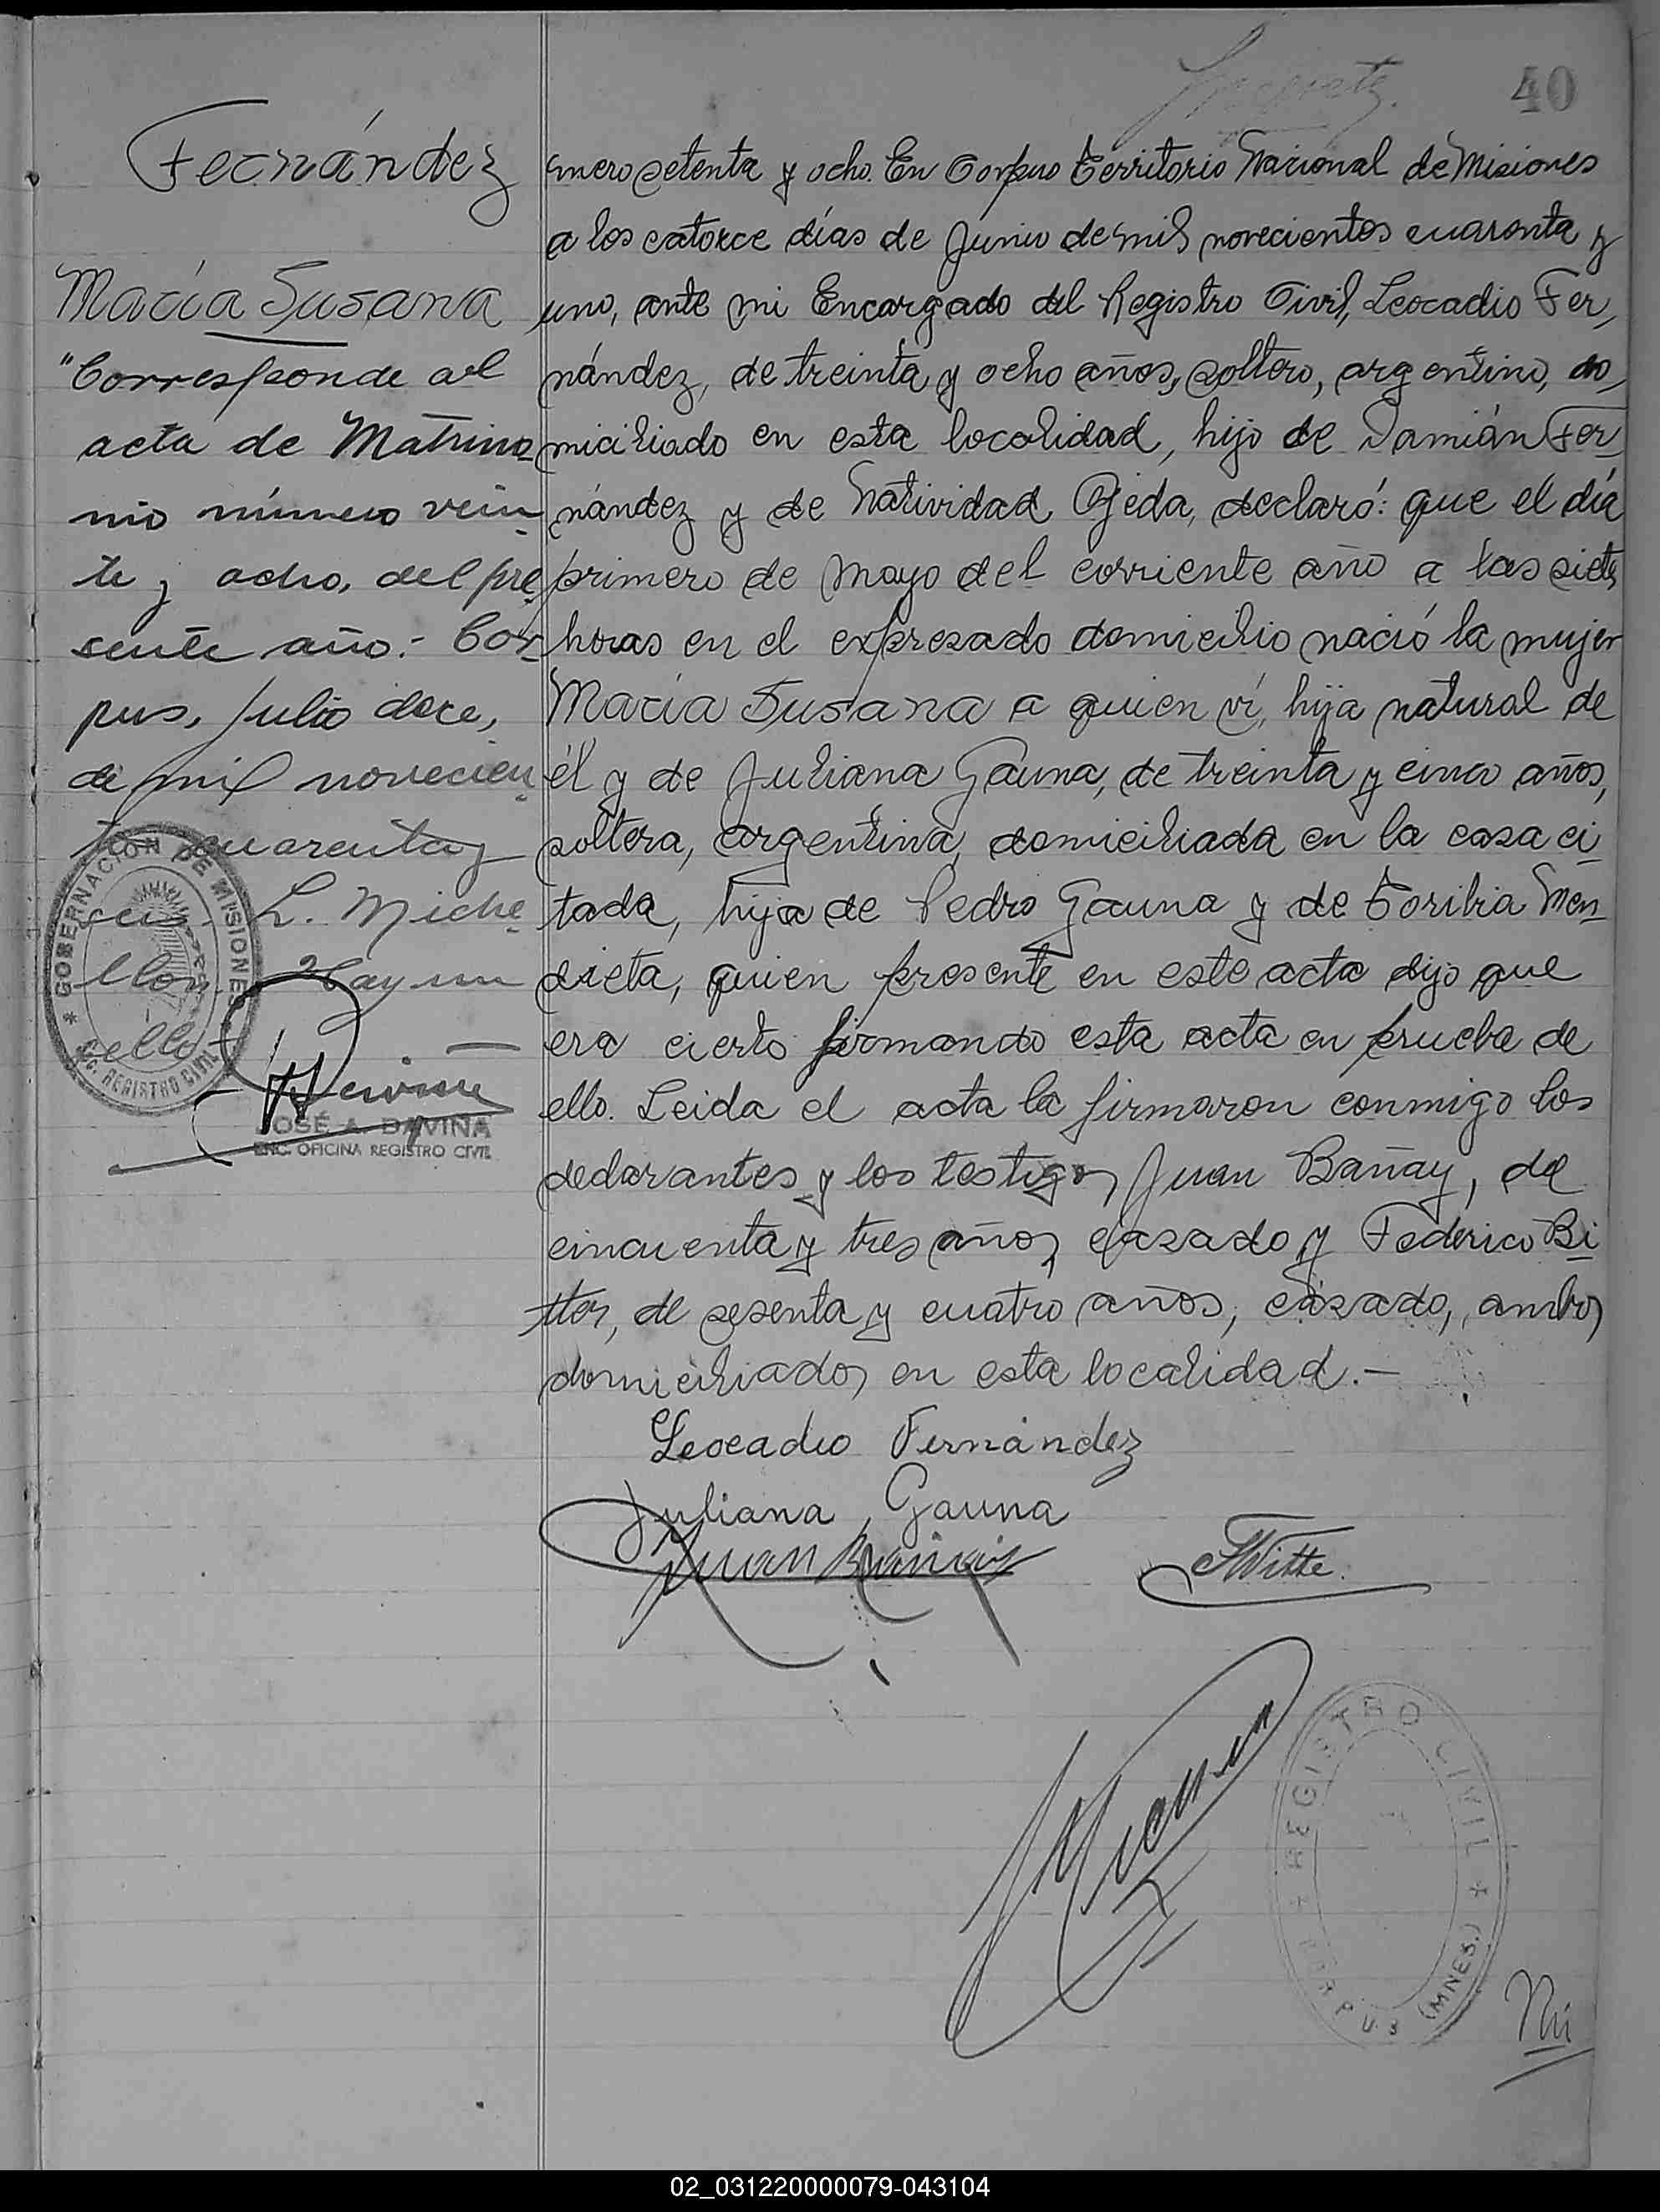 40
Fernández
María Susana
"Corresponde al
acta de Matrimo_
nio número vein_
te y ocho, del pre_
sente año.- Cor_
pus, Julio doce,
de mil novecien_
tos cuarenta y
seis. L. Miche_
llon. Hay un
sello
GOBERNACION DE MISIONES
REGISTRO CIVIL
JOSÉ A. DAVIÑA
ENC. OFICINA REGISTRO CIVIL
mero setenta y ocho. En Corpus Territorio Nacional de Misiones
a los catorce días de Junio de mil novecientos cuarenta y
uno, ante mi Encargado del Registro Civil, Leocadio Fer_
nández, de treinta y ocho años, soltero, argentino, do_
miciliado en esta localidad, hijo de Damián Fer_
nández y de Natividad Ojeda, declaró: que el día
primero de Mayo del corriente año a las siete
horas en el expresado domicilio nació la mujer
María Susana a quien ví, hija natural de
él y de Juliana Gauna, de treinta y cinco años,
soltera, argentina, domiciliada en la casa ci_
tada, hija de Pedro Gauna y de Toribia Men_
dieta, quien presente en este acta dijo que
era cierto firmando esta acta en prueba de
ello. Leida el acta la firmaron conmigo los
declarantes y los testigos Juan Bañay, de
cincuenta y tres años, casado y Federico Bi
tter, de sesenta y cuatro años, casado, ambos
domiciliados en esta localidad.-
Leocadio Fernández
Juliana Gauna
Juan
REGISTRO CIVIL
CORPUS (MNES.)
Nú
02_031220000079-043104